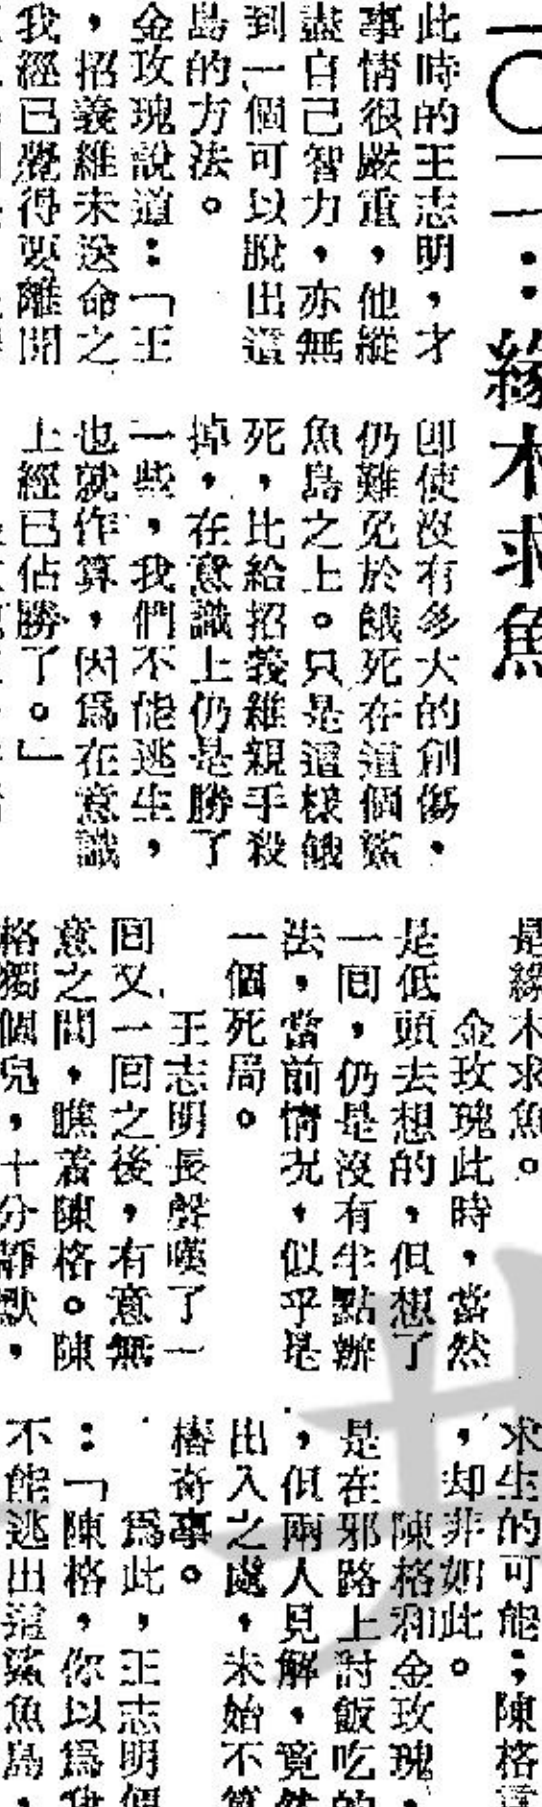 一〇二：緣木求魚
此時的王志明，才
事情很嚴重，他縱
盡自己智力，亦無
到一個可以脫出這
島的方法。
金玫瑰說道：「王
，招義維未送命之
我經已覺得要離開
即使沒有多大的創傷，
仍難免於餓死在這個鯊
魚島之上。只是這樣餓
死，比給招義維親手殺
掉，在意識上仍是勝了
一些，我們不能逃生，
也就作算，因爲在意識
上經已佔勝了。」
是緣木求魚。
金玫瑰此時，當然
是低頭去想的，但想了
一回，仍是沒有半點辦
法，當前情況，似乎是
一個死局。
王志明長聲嘆了一
回又一回之後，有意無
意之間，瞧着陳格。陳
格獨個兒，十分靜默，
求生的可能；陳格
，却非如此。
陳格和金玫瑰，
是在邪路上討飯吃的
，但兩人見解，竟然
出入之處，未始不算
樁奇事。
爲此，王志明便
：「陳格，你以爲我
不能逃出這鯊魚島，